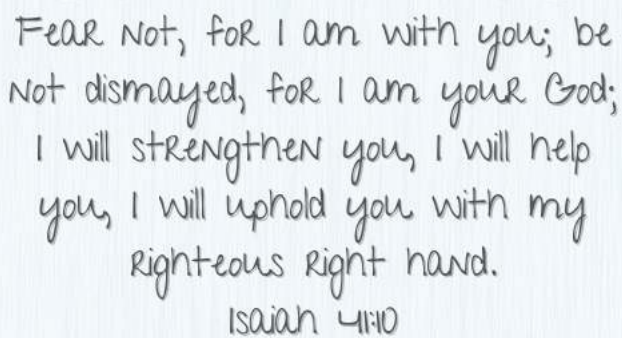 Fear not, for I am with you; be
not dismayed, for I am your God;
I will strengthen you, I will help
you, I will uphold you with my
righteous right hand.
Isaiah 41:10